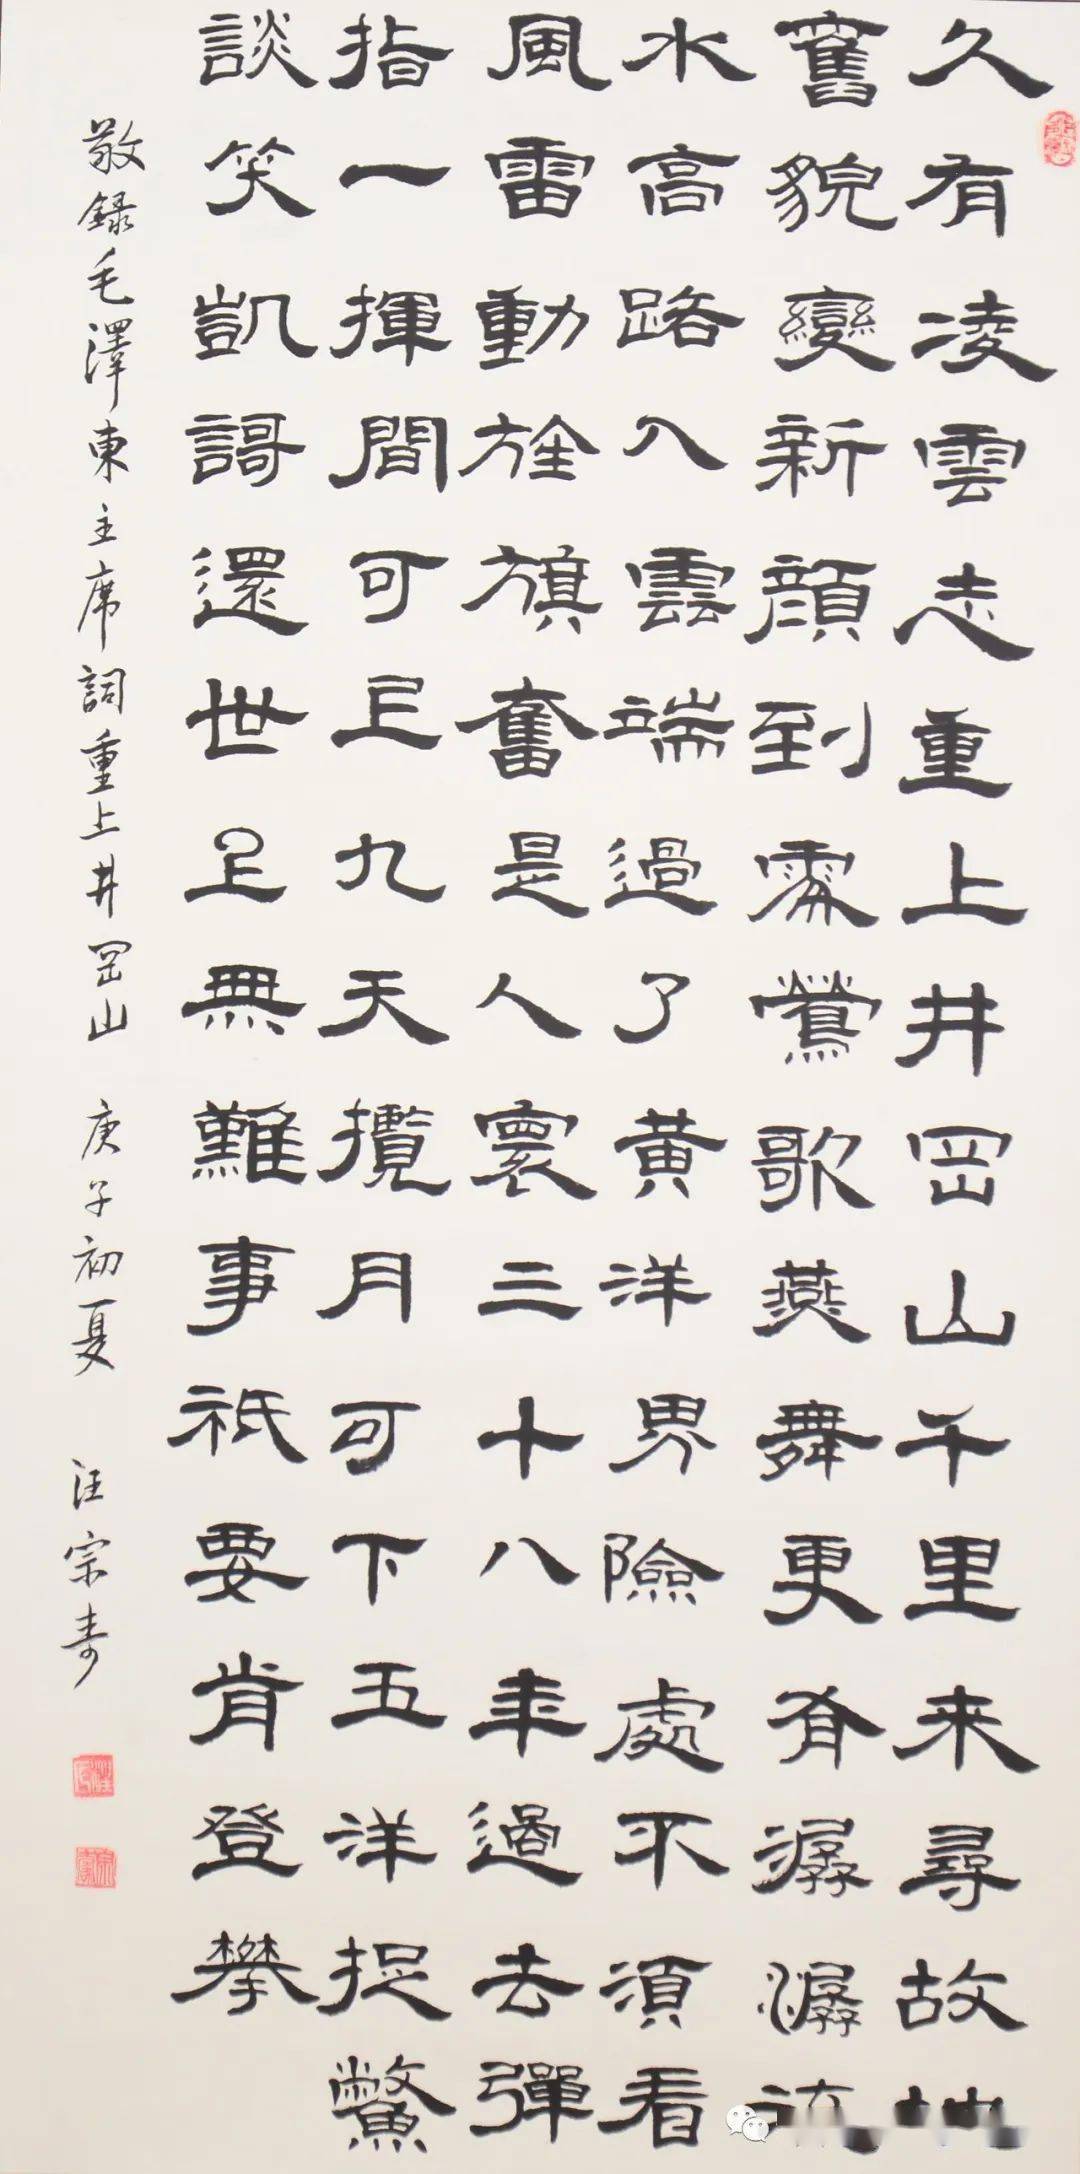 久有凌雲志重上井岡山千里来尋故地
舊貌變新顏到處鶯歌燕舞更有潺潺流
水高路入雲端過了黄洋界險處不須看
風雷動旌旗奮是人寰三十八年過去彈
指一揮間可上九天攬月可下五洋捉鱉
談笑凱謌還世上無難事祇要肯登攀
敬録毛澤東主席詞重上井岡山 庚子初夏 汪宗寿